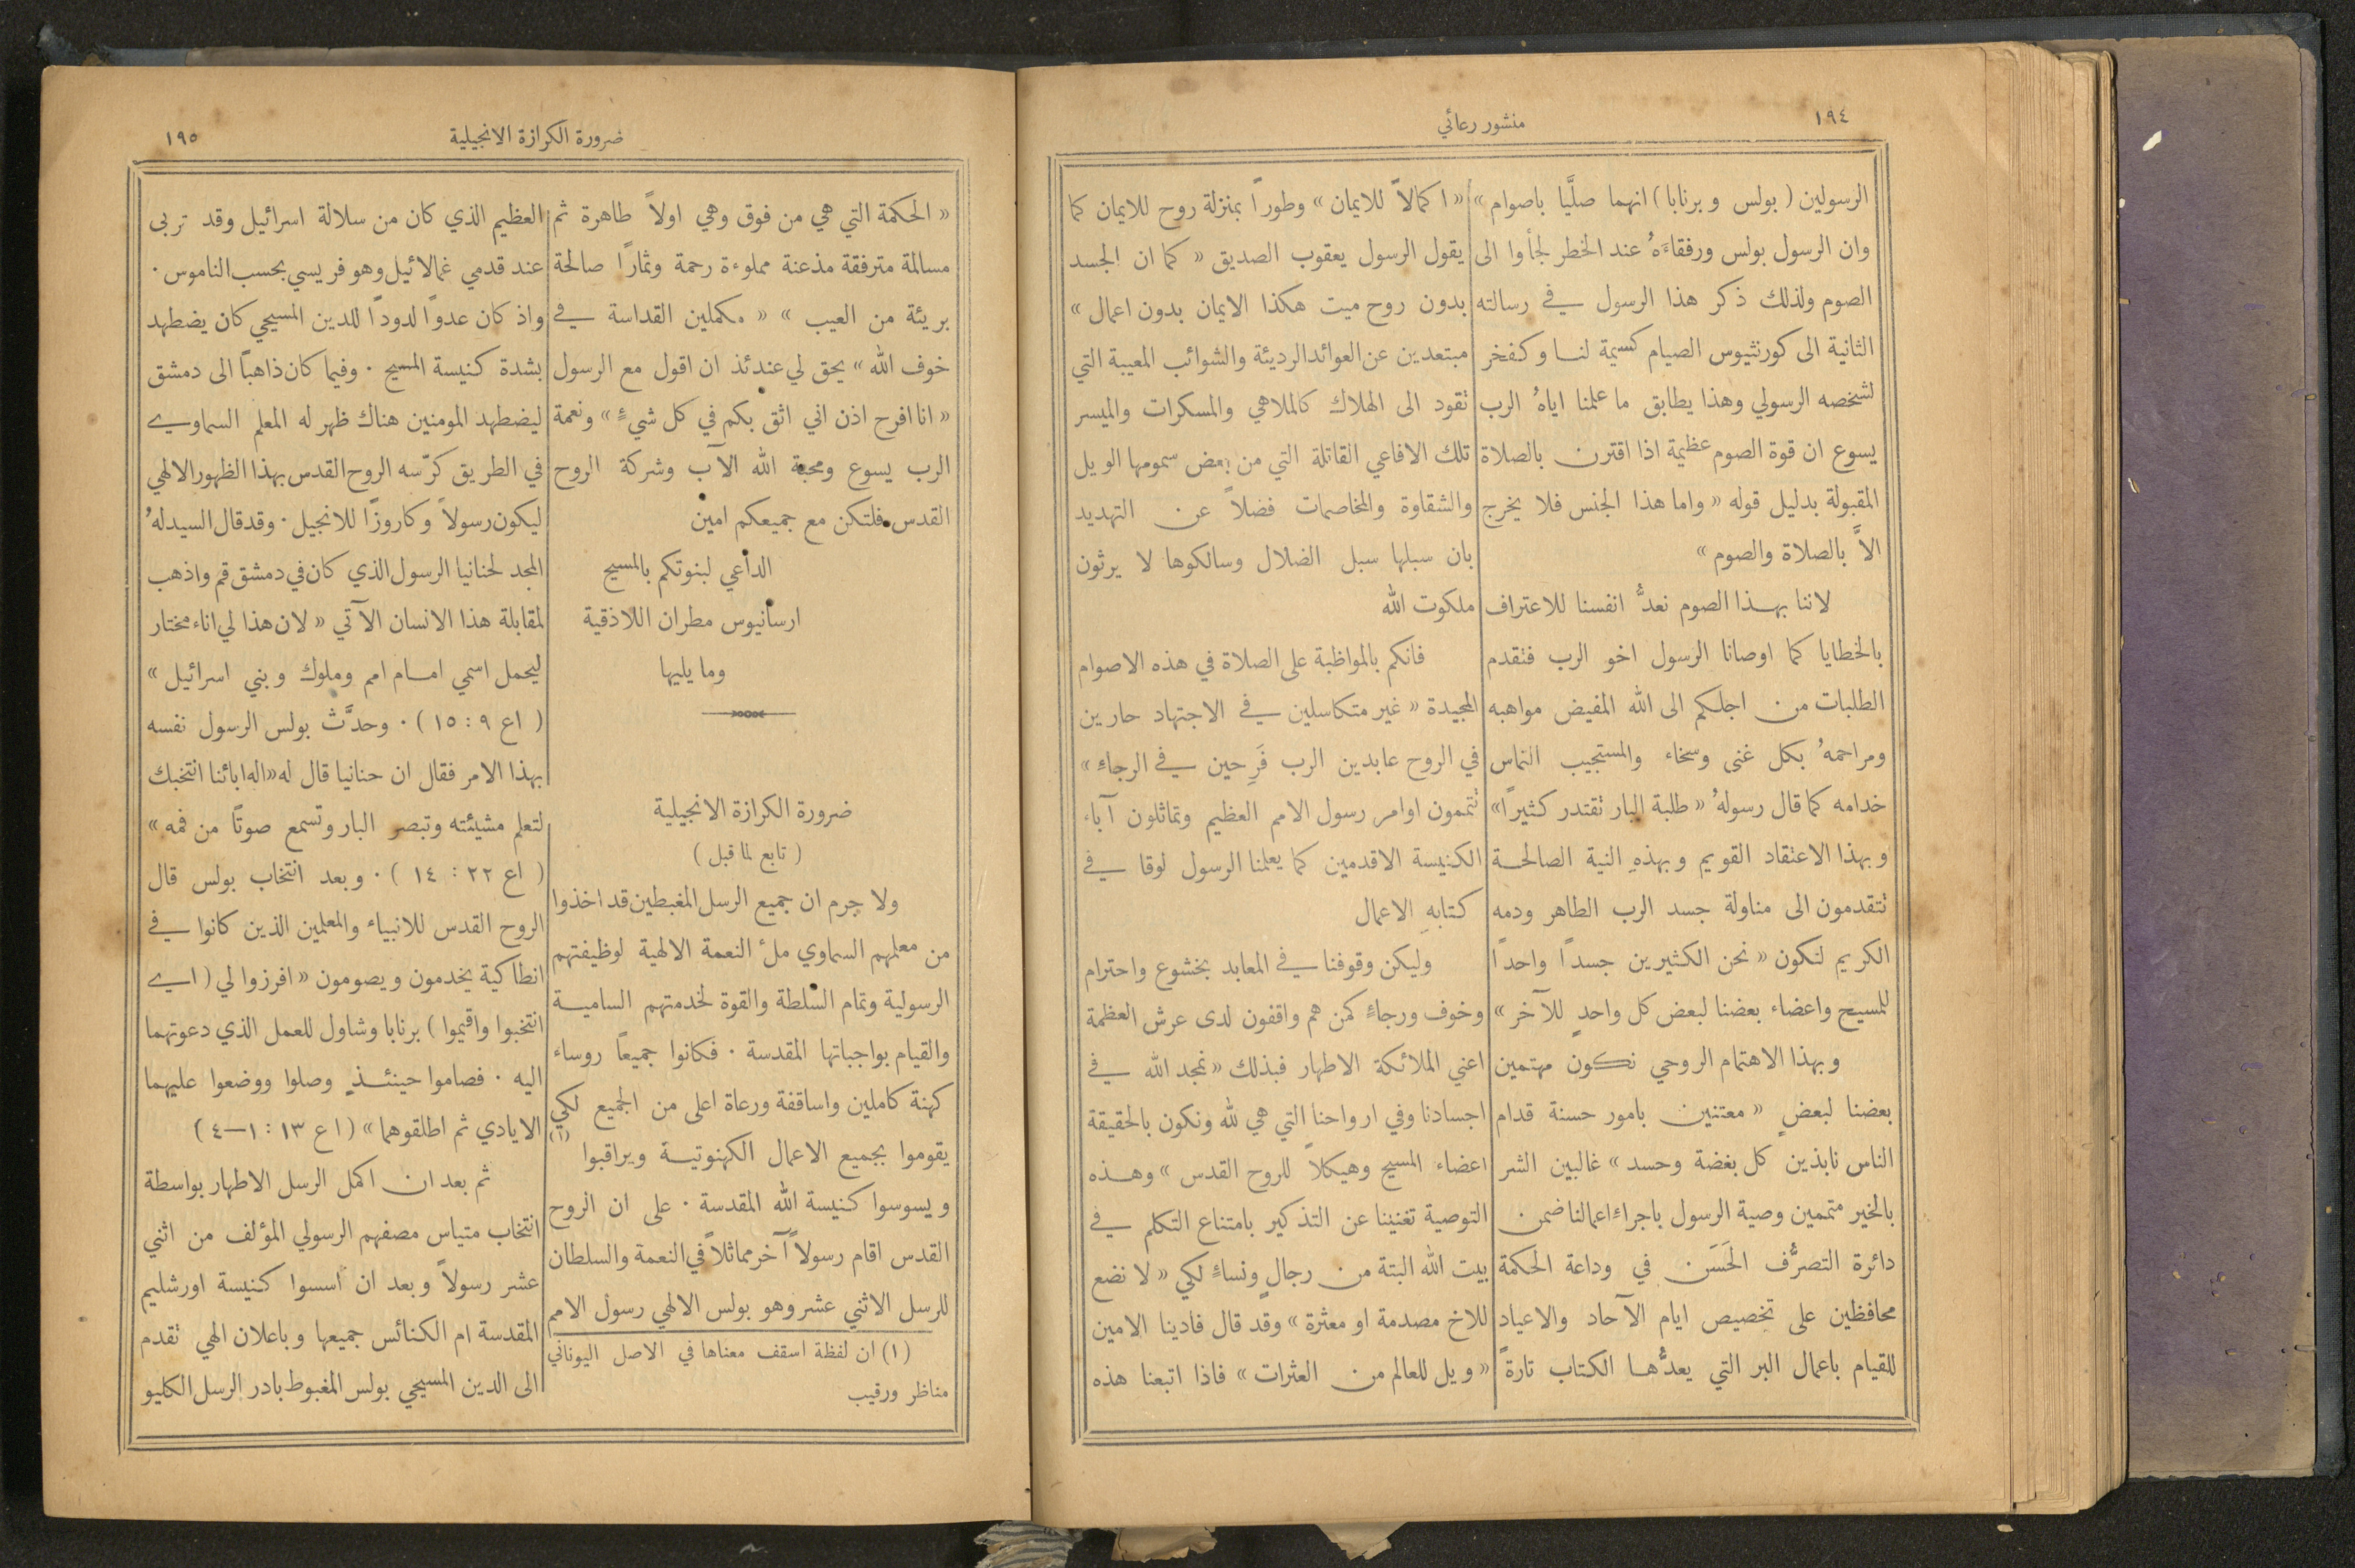 ١٩٤
منشور رعائي
الرسولين (بولس وبرنابا) انهما صليَّا باصوام»
وان الرسول بولس ورفقاءَهُ عند الخطر لجأوا الى
الصوم ولذلك ذكر هذا الرسول في رسالته
الثانية الى كورنثيوس الصيام كسيمة لنا وكفخر
لشخصه الرسولي وهذا يطابق ما علمنا اياهُ الرب
يسوع ان قوة الصوم عظيمة اذا اقترن بالصلاة
المقبولة بدليل قوله «واما هذا الجنس فلا يخرج
الاَّ بالصلاة والصوم»
لاننا بهذا الصوم نعدُّ انفسنا للاعتراف
بالخطايا كما اوصانا الرسول اخو الرب فتقدم
الطلبات من اجلكم الى الله المفيض مواهبه
ومراحمهُ بكل غنى وسخاء والمستجيب التماس
خدامه كما قال رسولهُ «طلبة البار تقتدر كثيرًا»
وبهذا الاعتقاد القويم وبهذهِ النية الصالحة
تتقدمون الى مناولة جسد الرب الطاهر ودمه
الكريم لنكون «نحن الكثيرين جسداً واحداً
للمسيح واعضاء بعضنا لبعض كل واحدٍ للآخر»
وبهذا الاهتمام الروحي نكون مهتمين
بعضنا لبعضٍ «معتنين بامور حسنة قدام
الناس نابذين كل بغضة وحسد» غالبين الشر
بالخير متممين وصية الرسول باجراءِ اعمالنا ضمن
دائرة التصرُّف الحَسَن في وداعة الحكمة
محافظين على تخصيص ايام الآحاد والاعياد
للقيام باعمال البر التي يعدُّها الكتاب تارةً
«اكمالاً للايمان» وطوراً بمنزلة روح للايمان كما
يقول الرسول يعقوب الصديق «كما ان الجسد
بدون روح ميت هكذا الايمان بدون اعمال»
مبتعدين عن العوائد الرديئة والشوائب المعيبة التي
تقود الى الهلاك كالملاهي والمسكرات والميسر
تلك الافاعي القاتلة التي من بعض سمومها الويل
والشقاوة والمخاصمات فضلاً عن التهديد
بان سبلها سبل الضلال وسالكوها لا يرثون
ملكوت الله
فانكم بالمواظبة على الصلاة في هذه الاصوام
المجيدة «غير متكاسلين في الاجتهاد حارين
في الروح عابدين الرب فَرِحين في الرجاءِ»
تتممون اوامر رسول الامم العظيم وتماثلون آباء
الكنيسة الاقدمين كما يعلمنا الرسول لوقا في
كتابهِ الاعمال
وليكن وقوفنا في المعابد بخشوع واحترام
وخوف ورجاءٍ كمن هم واقفون لدى عرش العظمة
اعني الملائكة الاطهار فبذلك «نمجد الله في
اجسادنا وفي ارواحنا التي هي لله ونكون بالحقيقة
اعضاء المسيح وهيكلاً للروح القدس» وهذه
التوصية تغنينا عن التذكير بامتناع التكلم في
بيت الله البتة من رجالٍ ونساءٍ لكي «لا نضع
للاخ مصدمة او معثرة» وقد قال فادينا الامين
«ويل للعالم من العثرات» فاذا اتبعنا هذه
ضرورة الكرازة الانجيلية
١٩٥
«الحكمة التي هي من فوق وهي اولاً طاهرة ثم
مسالمة مترفقة مذعنة مملوءة رحمة وثماراً صالحة
بريئة من العيب» «مكملين القداسة في
خوف الله» يحق لي عندئذ ان اقول مع الرسول
«انا افرح اذن اني اثق بكم في كل شيءٍ» ونعمة
الرب يسوع ومحبة الله الآب وشركة الروح
القدس فلتكن مع جميعكم امين
الداعي لبنوتكم بالمسيح
ارسانيوس مطران اللاذقية
وما يليها
ضرورة الكرازة الانجيلية
(تابع لما قبل)
ولا جرم ان جميع الرسل المغبطين قد اخذوا
من معلمهم السماوي ملْ النعمة الالهية لوظيفتهم
الرسولية وتمام السلطة والقوة لخدمتهم السامية
والقيام بواجباتها المقدسة . فكانوا جميعًا روساء
كهنة كاملين واساقفة ورعاة اعلى من الجميع لكي
يقوموا بجميع الاعمال الكهنوتية ويراقبوا (١)
ويسوسوا كنيسة الله المقدسة . على ان الروح
القدس اقام رسولاً آخر مماثلاً في النعمة والسلطان
للرسل الاثني عشر وهو بولس الالهي رسول الامم
(١) ان لفظة اسقف معناها في الاصل اليوناني
مناظر ورقيب
العظيم الذي كان من سلالة اسرائيل وقد تربى
عند قدمي غمالائيل وهو فريسي بحسب الناموس .
واذ كان عدواً لدوداً للدين المسيحي كان يضطهد
بشدة كنيسة المسيح . وفيما كان ذاهباً الى دمشق
ليضطهد المومنين هناك ظهر له المعلم السماوي
في الطريق كرّسه الروح القدس بهذا الظهور الالهي
ليكون رسولاً وكاروزًا للانجيل . وقد قال السيد لهُ
المجد لحنانيا الرسول الذي كان في دمشق قم واذهب
لمقابلة هذا الانسان الآتي «لان هذا لي اناء مختار
ليحمل اسمي امام امم وملوك وبني اسرائيل»
(اع ٩ : ١٥) . وحدَّث بولس الرسول نفسه
بهذا الامر فقال ان حنانيا قال له «اله ابائنا انتخبك
لتعلم مشيئته وتبصر البار وتسمع صوتًا من فمه»
(اع ٢٢ : ١٤) . وبعد انتخاب بولس قال
الروح القدس للانبياء والمعلمين الذين كانوا في
انطاكية يخدمون ويصومون «افرزوا لي (اي
انتخبوا واقيموا) برنابا وشاول للعمل الذي دعوتهما
اليه . فصاموا حينئذٍ وصلوا ووضعوا عليهما
الايادي ثم اطلقوهما» (اع ١٣ : ١—٤)
ثم بعد ان اكمل الرسل الاطهار بواسطة
انتخاب متياس مصفهم الرسولي المؤلف من اثني
عشر رسولاً وبعد ان اسسوا كنيسة اورشليم
المقدسة ام الكنائس جميعها وباعلان الهي تقدم
الى الدين المسيحي بولس المغبوط بادر الرسل الكليو